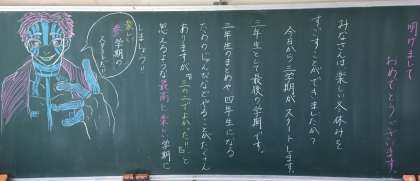 明けまして
おめでとうございます
みなさんは楽しい冬休みを
すごすことができましたか?
今日から三学期がスタートします。
三年生として最後の学期です。
三年生のまとめや四年生になる
ためのじゅんびなどやることがたくさん
ありますが『三の二でよかった!!』と
思えるような最高に楽しい学期に
しましょう!!
学期の
スタートだ!!